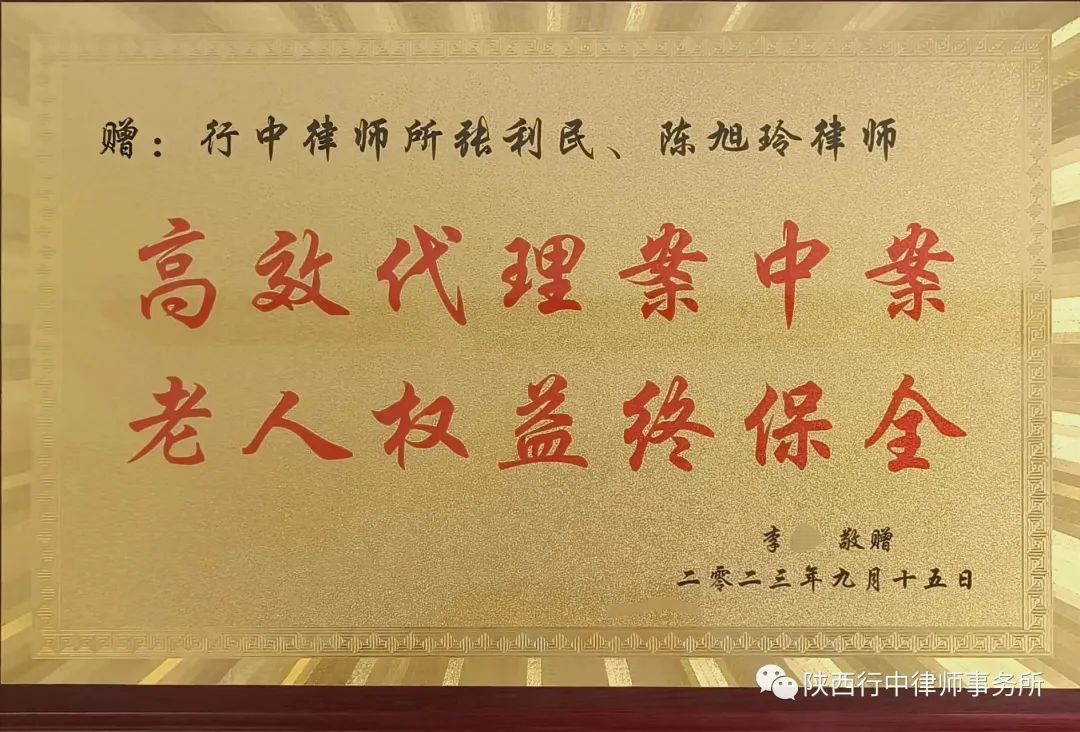 赠：行中律师所张利民、陈旭玲律师
高效代理案中案
老人权益终保全
李 敬赠
二零二三年九月十五日
陕西行中律师事务所